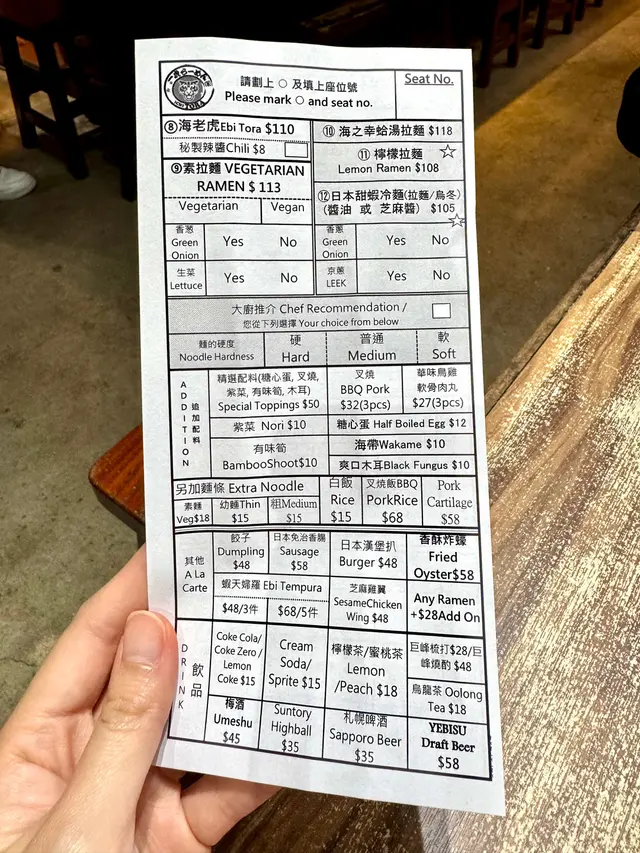 一虎らーめん
TORA
請劃上 ○ 及填上座位號
Please mark ○ and seat no.
Seat No.
⑧海老虎Ebi Tora $110
秘製辣醬Chili $8
⑨素拉麵 VEGETARIAN
RAMEN $ 113
Vegetarian
Vegan
香蔥
Green
Onion
Yes
No
生菜
Lettuce
Yes
No
⑩ 海之幸蛤湯拉麵 $118
⑪ 檸檬拉麵 ☆
Lemon Ramen $108
⑫日本甜蝦冷麵(拉麵/烏冬)
(醬油 或 芝麻醬) $105
☆
香蔥
Green
Onion
Yes
No
京蔥
LEEK
Yes
No
大廚推介 Chef Recommendation /
您從下列選擇 Your choice from below
麵的硬度
Noodle Hardness
硬
Hard
普通
Medium
軟
Soft
ADDITION
追加配料
精選配料(糖心蛋, 叉燒,
紫菜, 有味筍, 木耳)
Special Toppings $50
叉燒
BBQ Pork
$32(3pcs)
華味鳥雞
軟骨肉丸
$27(3pcs)
紫菜 Nori $10
糖心蛋 Half Boiled Egg $12
有味筍
BambooShoot$10
海帶Wakame $10
爽口木耳Black Fungus $10
另加麵條 Extra Noodle
素麵
Veg$18
幼麵Thin
$15
粗Medium
$15
白飯
Rice
$15
叉燒飯BBQ
PorkRice
$68
Pork
Cartilage
$58
其他
A La
Carte
餃子
Dumpling
$48
日本免治香腸
Sausage
$58
日本漢堡扒
Burger $48
香酥炸蠔
Fried
Oyster$58
蝦天婦羅 Ebi Tempura
$48/3件
$68/5件
芝麻雞翼
SesameChicken
Wing $48
Any Ramen
+$28Add On
DRINK
飲品
Coke Cola/
Coke Zero /
Lemon
Coke $15
Cream
Soda/
Sprite $15
檸檬茶/蜜桃茶
Lemon
/Peach $18
巨峰梳打$28/巨
峰燒酌 $48
烏龍茶 Oolong
Tea $18
梅酒
Umeshu
$45
Suntory
Highball
$35
札幌啤酒
Sapporo Beer
$35
YEBISU
Draft Beer
$58